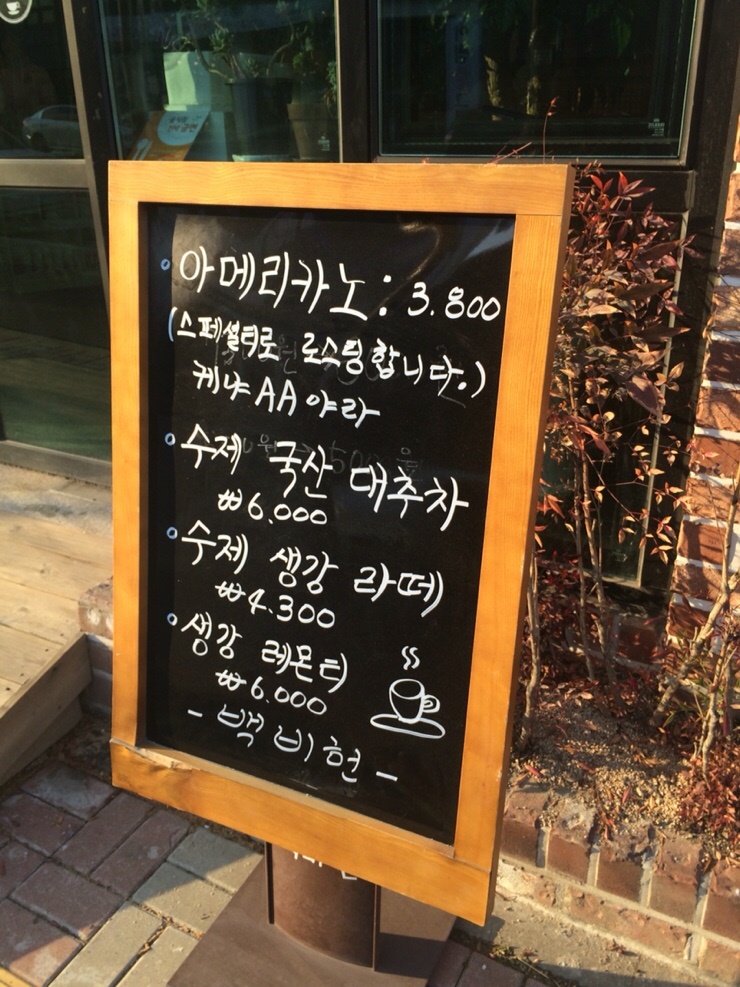 아메리카노: 3.800
(스페셜티로 로스팅합니다.)
케냐AA 야라
수제 국산 대추차
₩6.000
수제 생강 라떼
₩4.300
생강 레몬티
₩6.000
- 백비헌 -